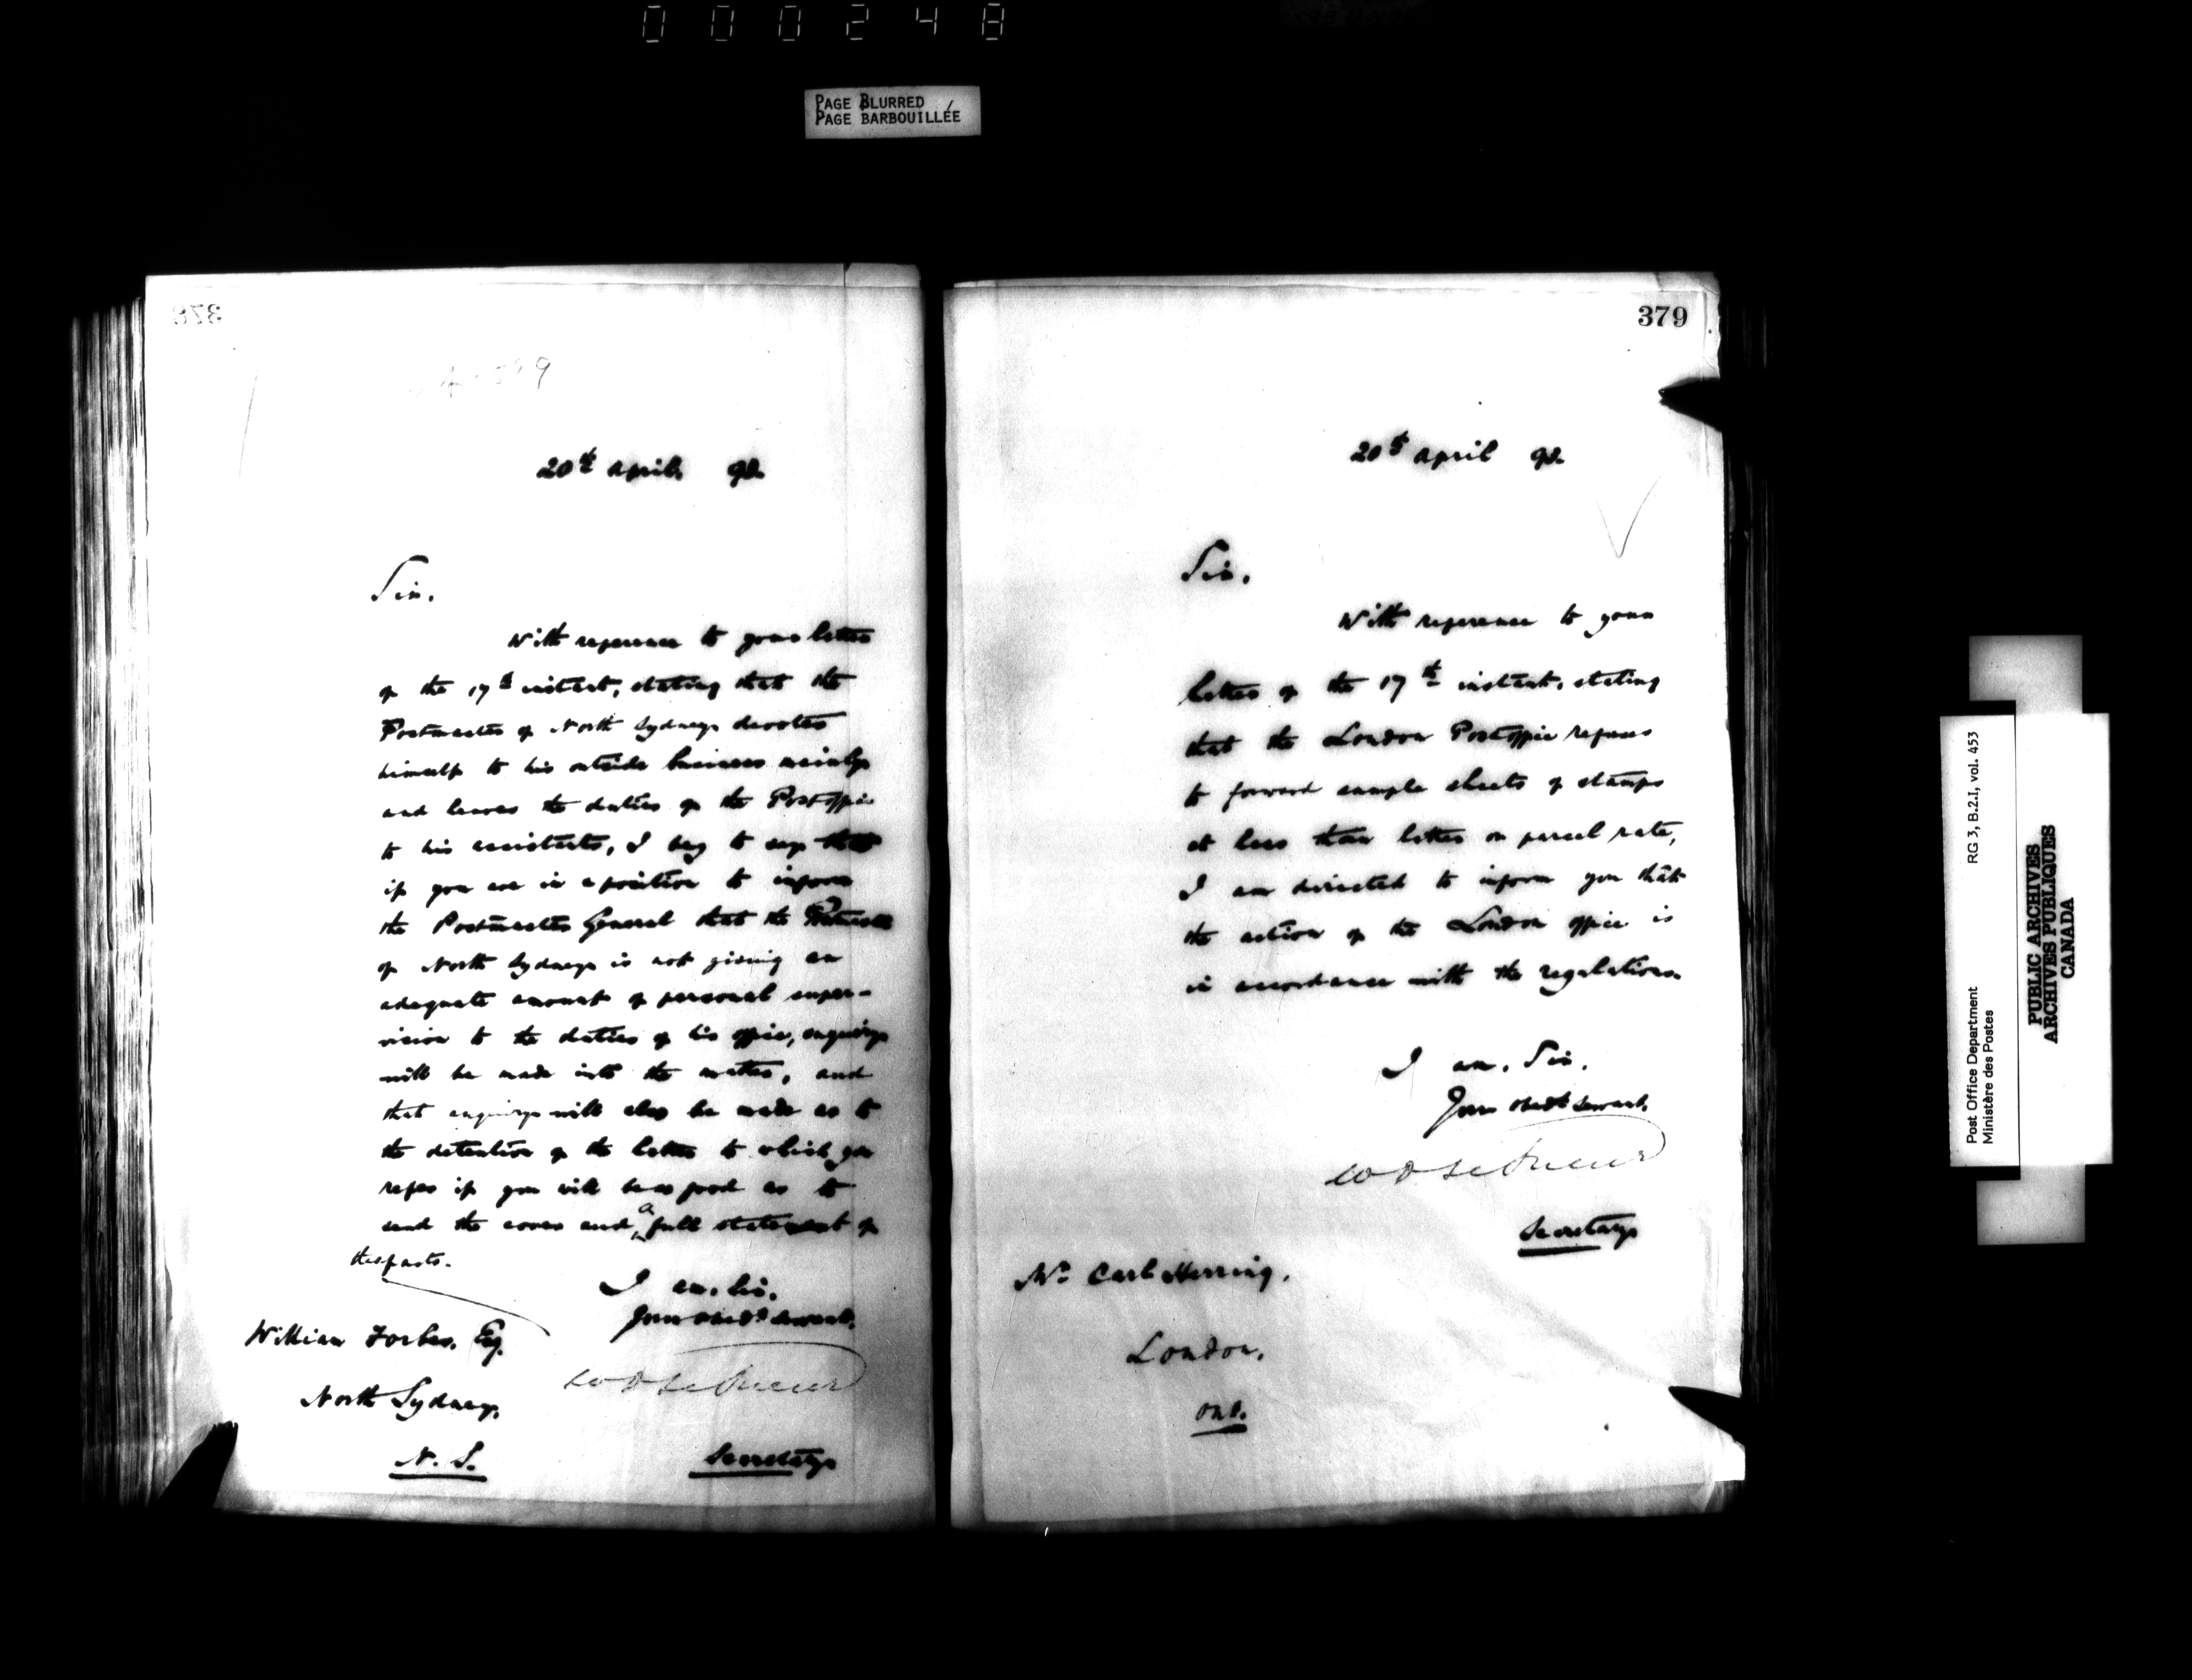 000248
PAGE BLURRED
PAGE BARBOUILLÉE
378
20th April,
Sir.
With reference to your letter
of the 17th instant, stating that the
Postmaster of North Sydney devotes
himself to his outside business mainly
and leaves the duties of the Post office
to his assistants, I beg to say that
if you are in a position to inform
the Postmaster General that the Postmaster
of North Sydney is not giving an
adequate amount of personal super-
vision to the duties of his office, enquiry
will be made into the matter, and
that enquiry will also be made as to
the detention of the letter to which you
refer if you will be so good as to
send the cover and a full statement of
the facts.
I am, Sir.
Your Obedt. Servant.
W D LeSueur
Secretary
William Forbes, Esq.
North Sydney.
N. S.
379
20th April
Sir.
With reference to your
letter of the 17th instant, stating
that the London Post office refuses
to forward sample sheets of stamps
at less than letter or parcel rate,
I am directed to inform you that
the action of the London office is
in accordance with the regulations.
I am. Sir.
Your Obedt Servant.
W D LeSueur
Secretary
Mr Carl Herring.
London.
Ont.
Post Office Department
Ministère des Postes
RG 3, B.2.I, vol. 453
PUBLIC ARCHIVES
ARCHIVES PUBLIQUES
CANADA